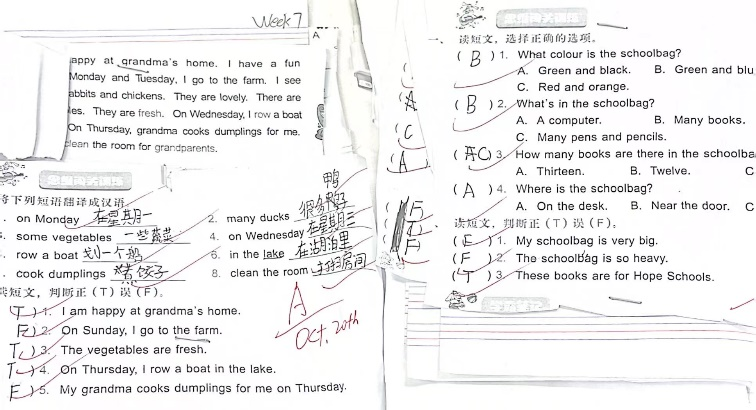 Week 7
appy at grandma's home. I have a fun
Monday and Tuesday, I go to the farm. I see
abbits and chickens. They are lovely. There are
es. They are fresh. On Wednesday, I row a boat
On Thursday, grandma cooks dumplings for me.
lean the room for grandparents.
将下列短语翻译成汉语
. on Monday 在星期一
2. many ducks 很多鸭子
鸭
. some vegetables 一些蔬菜
4. on Wednesday 在星期三
. row a boat 划一个船
6. in the lake 在湖泊里
. cook dumplings 煮饺子
8. clean the room 打扫房间
读短文，判断正（T）误（F）。
(T) 1. I am happy at grandma's home.
(F) 2. On Sunday, I go to the farm.
(T) 3. The vegetables are fresh.
(T) 4. On Thursday, I row a boat in the lake.
(F) 5. My grandma cooks dumplings for me on Thursday.
A
Oct. 20th
A
(A
(C
(A
F
T
F
一、读短文，选择正确的选项。
(B) 1. What colour is the schoolbag?
A. Green and black. B. Green and blu
C. Red and orange.
(B) 2. What's in the schoolbag?
A. A computer. B. Many books.
C. Many pens and pencils.
(C) 3. How many books are there in the schoolba
A. Thirteen. B. Twelve. C
(A) 4. Where is the schoolbag?
A. On the desk. B. Near the door. C
读短文，判断正（T）误（F）。
(F) 1. My schoolbag is very big.
(F) 2. The schoolbag is so heavy.
(T) 3. These books are for Hope Schools.